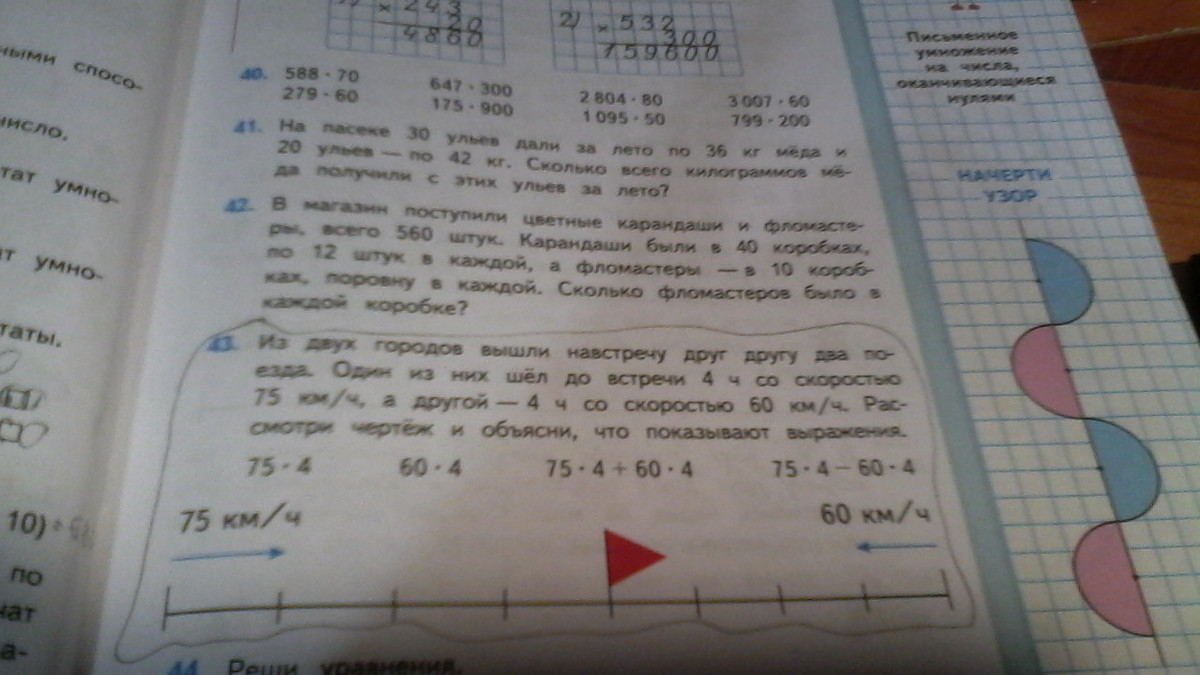 ными спосо-
число.
тат умно-
ат умно-
таты.
10)
по
чат
а-
× 243
20
4860
2) × 532
300
159600
40. 588 · 70 647 · 300 2 804 · 80 3 007 · 60
279 · 60 175 · 900 1 095 · 50 799 · 200
41. На пасеке 30 ульев дали за лето по 36 кг мёда и
20 ульев — по 42 кг. Сколько всего килограммов мё-
да получили с этих ульев за лето?
42. В магазин поступили цветные карандаши и фломасте-
ры, всего 560 штук. Карандаши были в 40 коробках,
по 12 штук в каждой, а фломастеры — в 10 короб-
ках, поровну в каждой. Сколько фломастеров было в
каждой коробке?
43. Из двух городов вышли навстречу друг другу два по-
езда. Один из них шёл до встречи 4 ч со скоростью
75 км/ч, а другой — 4 ч со скоростью 60 км/ч. Рас-
смотри чертёж и объясни, что показывают выражения.
75 · 4 60 · 4 75 · 4 + 60 · 4 75 · 4 − 60 · 4
75 км/ч 60 км/ч
44. Реши уравнения.
Письменное
умножение
на числа,
оканчивающиеся
нулями
НАЧЕРТИ
УЗОР